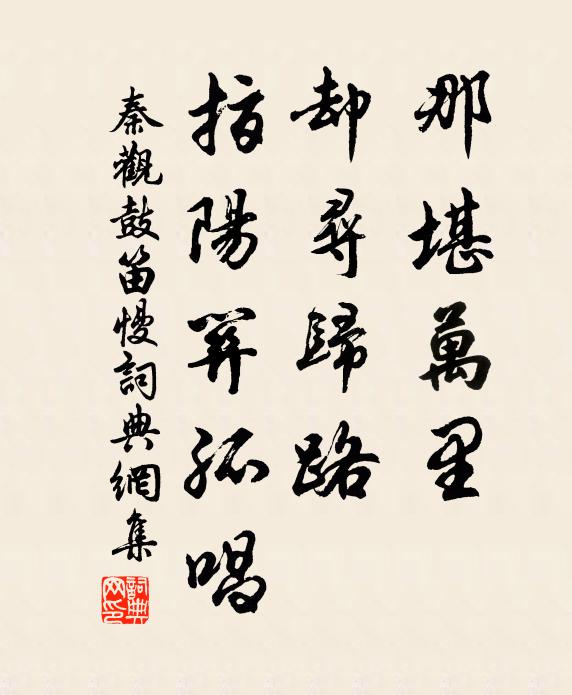 那堪萬里
却尋歸路
指陽關孤唱
秦觀鼓笛慢詞典網集
詞典網印